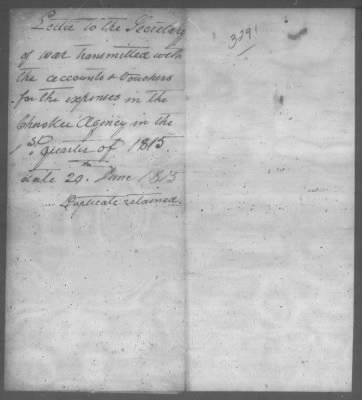 Letter to the Secretary
of war transmitted with
the accounts & vouchers
for the expenses in the
Cherokee Agency in the
1st Quarter of 1815.
date 20. June 1815
Duplicate retained.
3291